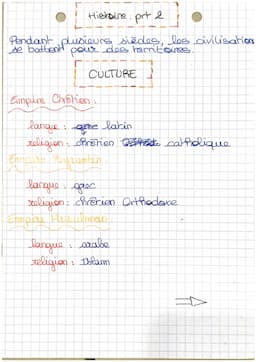 Histoire prt 2
Pendant plusieurs siècles, les civilisations
se battent pour des territoires.
CULTURE
Empire Chrétien :
langue : grec latin
religion : chrétien catholique
Empire Byzantin :
langue : grec
religion : chrétien Orthodoxe
Empire Musulman :
langue : arabe
religion : Islam